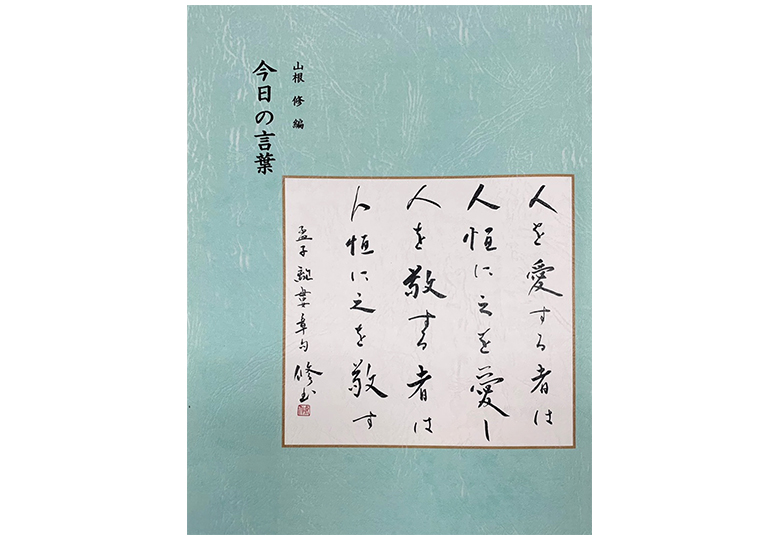 山根 修 編
今日の言葉
人を愛する者は
人恒に之を愛し
人を敬する者は
人恒に之を敬す
孟子離婁章句 修書